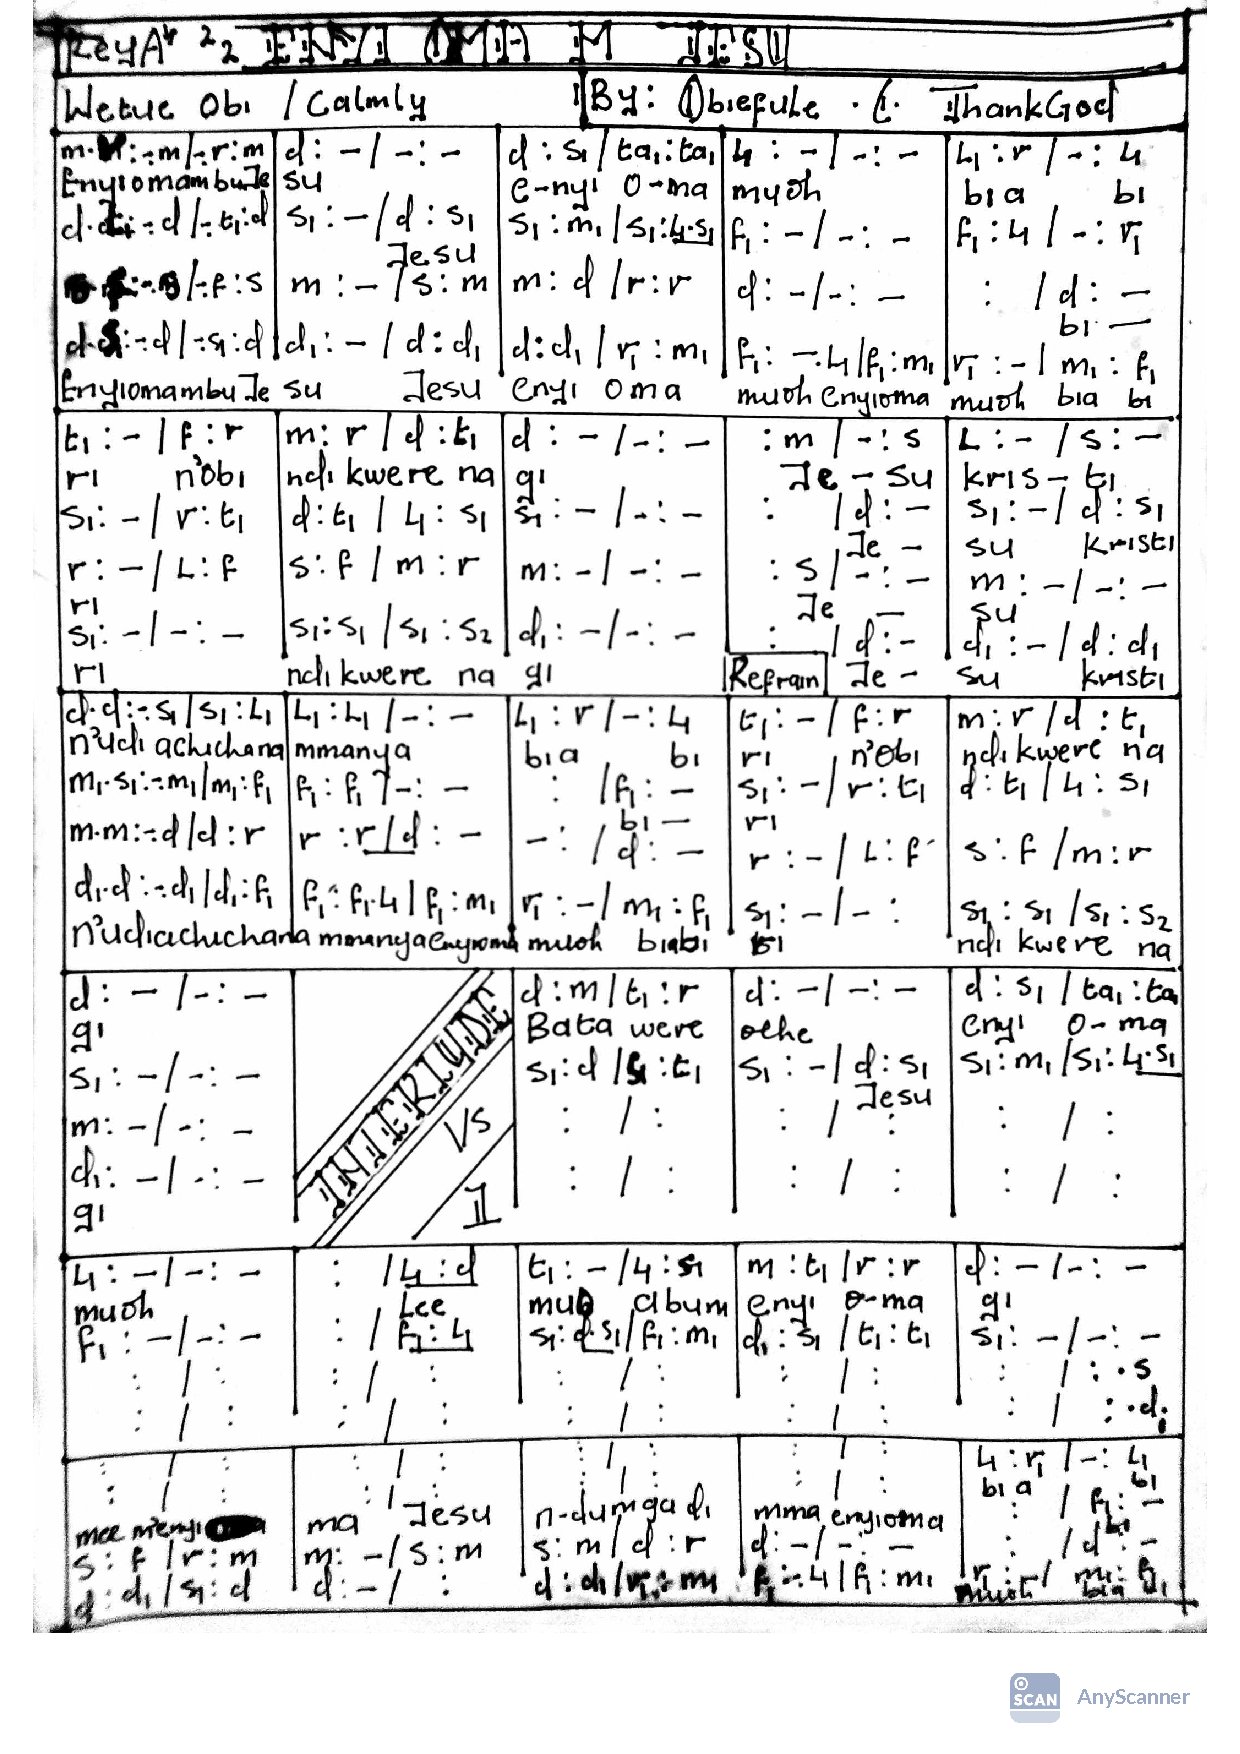 Key Ab 2/2 ENYI OMA M JESU
Wetue Obi / Calmly By: Obiefule . C . ThankGod
d : – / – : – d : s₁ / ta₁ : ta₁ l₁ : – / – : – l₁ : r / – : l₁
EnyiomambuJe su e-nyi o-ma muoh bia bi
s₁ : – / d : s₁ s₁ : m₁ / s₁ : l₁.s₁ f₁ : – / – : – f₁ : l₁ / – : r₁
Jesu
m : – / s : m m : d / r : r d : – / – : – : / d : –
bi —
d₁ : – / d : d₁ d : d₁ / r₁ : m₁ f₁ : –.l₁ / f₁ : m₁ r₁ : – / m₁ : f₁
EnyiomambuJe su Jesu enyi oma muoh enyioma muoh bia bi
t₁ : – / f : r m : r / d : t₁ d : – / – : – : m / – : s L : – / s : –
ri n'obi ndi kwere na gi Je – su kris – ti
s₁ : – / r : t₁ d : t₁ / l₁ : s₁ s₁ : – / – : – : / d : – s₁ : – / d : s₁
Je – su kristi
r : – / L : f s : f / m : r m : – / – : – : s / – : – m : – / – : –
ri Je — su
s₁ : – / – : – s₁ : s₁ / s₁ : s₂ d₁ : – / – : – : / d : – d₁ : – / d : d₁
ri ndi kwere na gi Refrain Je – su kristi
d.d : –.s₁ / s₁ : L₁ L₁ : L₁ / – : – L₁ : r / – : l₁ t₁ : – / f : r m : r / d : t₁
n'udi achichana mmanya bia bi ri n'obi ndi kwere na
m₁.s₁ : –.m₁ / m₁ : f₁ f₁ : f₁ / – : – : / f₁ : – s₁ : – / r : t₁ d : t₁ / l₁ : s₁
bi — ri
m.m : –.d / d : r r : r / d : – – : / d : – r : – / L : f s : f / m : r
d₁.d : –.d₁ / d₁ : f₁ f₁ : f₁.l₁ / f₁ : m₁ r₁ : – / m₁ : f₁ s₁ : – / – : s₁ : s₁ / s₁ : s₂
n'udiachichana mmanya enyioma muoh biabi ndi kwere na
d : – / – : – d : m / t₁ : r d : – / – : – d : s₁ / ta₁ : ta₁
gi Bata were oche enyi o-ma
s₁ : – / – : – INTERLUDE s₁ : – / d : s₁ s₁ : m₁ / s₁ : l₁.s₁
VS Jesu
m : – / – : – : / : : / : : / :
d₁ : – / – : – 1 : / : : / : : / :
gi
l₁ : – / – : – : / l₁ : d t₁ : – / l₁ : s₁ m : t₁ / r : r d : – / – : –
muoh Lee enyi o-ma gi
f₁ : – / – : – : / f₁ : l₁ s₁ : d.s₁ / f₁ : m₁ d₁ : s₁ / t₁ : t₁ s₁ : – / – : –
: / : : / : : / : : / : : / : .s
: / : : / : : / : : / : : / : .d₁
: / : : / : : / : : / : l₁ : r₁ / – : l₁
: / : : / : : / : : / : bia bi
ma Jesu n-dumga di mma enyioma
s : f / r : m m : – / s : m s : m / d : r d : – / – : – : / d : –
d : d₁ / s₁ : d d : – / : f₁ : –.l₁ / f₁ : m₁
SCAN AnyScanner